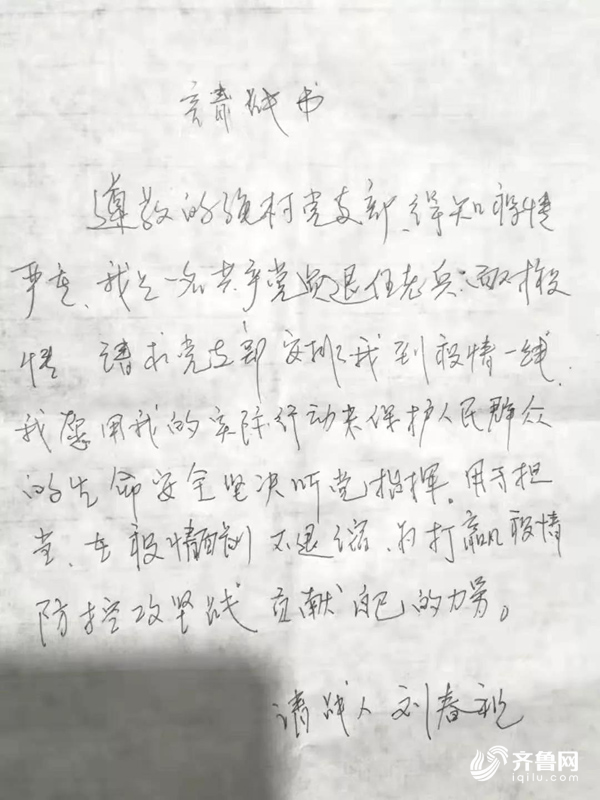 请战书
尊敬的强村党支部,得知疫情
严重,我是一名共产党员退伍老兵,面对疫
情 请求党支部安排我到疫情一线,
我愿用我的实际行动来保护人民群众
的生命安全坚决听党指挥。用于担
当,在疫情面前不退缩,为打赢疫情
防控攻坚战贡献自己的力量。
请战人 刘春
齐鲁网
iqilu.com